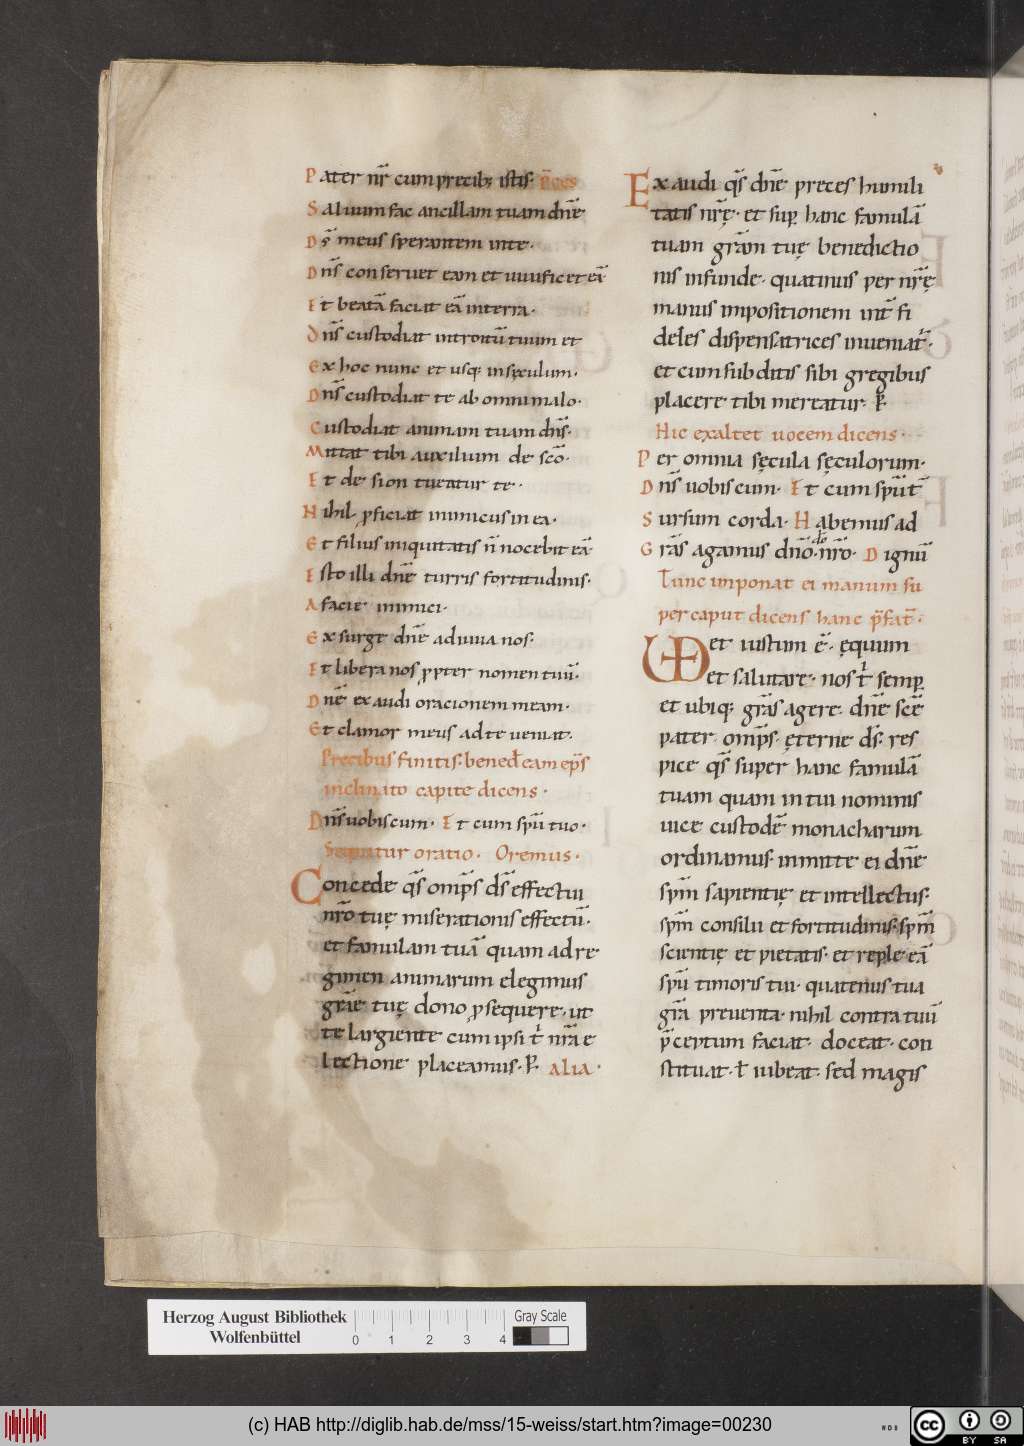 Pater nr̄ cum precib; istis. p̄ces
Saluum fac ancillam tuam dn̄e
Ds̄ meus sperantem in te.
Dn̄s conseruet eam et uiuificet eā
Et beatā faciat eā in terra.
Dn̄s custodiat introitū tuum et
Ex hoc nunc et usq; in sęculum.
Dn̄s custodiat te ab omni malo.
Custodiat animam tuam dn̄s.
Mittat tibi auxilium de sc̄o.
Et de sion tueatur te.
Nihil ꝓficiat inimicus in ea.
Et filius iniquitatis n̄ nocebit eā
Esto illi dn̄e turris fortitudinis.
A facie inimici.
Exsurge dn̄e adiuua nos.
Et libera nos ꝓpter nomen tuū.
Dn̄e exaudi oracionem meam.
Et clamor meus ad te ueniat.
Precibus finitis. bened̄ eam ep̄s
inclinato capite dicens.
Dn̄s uobiscum. Et cum spū tuo.
Sequitur oratio. Oremus.
Concede qs̄ omp̄s ds̄ effectui
nr̄o tuę miserationis effectū.
et famulam tuā quam ad re
gimen animarum elegimus
gr̄ae tuę dono ꝓsequere. ut
te largiente cum ipsi᷒ t̄ nr̄a e
lectione placeamus. P̄. alia.
Exaudi qs̄ dn̄e preces humili
tatis nr̄ę. et suꝑ hanc famulā
tuam gr̄am tuę benedictio
nis infunde. quatinus per nr̄ę
manus impositionem int̄ fi
deles dispensatrices inueniat᷑.
et cum subditis sibi gregibus
placere tibi mereatur. P̄.
Hic exaltet uocem dicens.
Per omnia sęcula sęculorum.
Dn̄s uobiscum. Et cum spū t̄
Sursum corda. Habemus ad
Gr̄as agamus dn̄o. do nr̄o. Dignū
Tunc imponat ei manum su
per caput dicens hanc p̄fat̄.
UD et iustum ē. ęquum
et salutare. nos t᷒ semꝑ
et ubiq; gr̄as agere. dn̄e sc̄e
pater omp̄s. ęterne ds̄. res
pice qs̄ super hanc famulā
tuam quam in tui nominis
uice custodē monacharum
ordinamus. inmitte ei dn̄e
spm̄ sapientię et intellectus.
spm̄ consilii et fortitudinis. spm̄
scientię et pietatis. et reple eā
spū timoris tui. quatenus tua
gr̄a preuenta. nihil contra tuū
p̄ceptum faciat. doceat. con
stituat. t̄ iubeat. sed magis
Herzog August Bibliothek
Wolfenbüttel
0 1 2 3 4
Gray Scale
(c) HAB http://diglib.hab.de/mss/15-weiss/start.htm?image=00230
WDB
cc BY SA